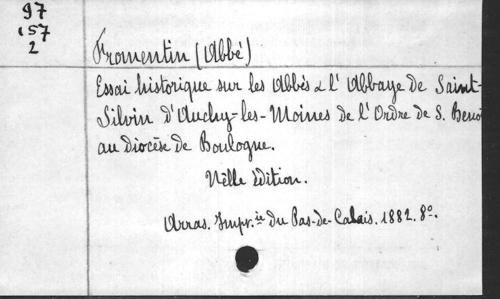 97
157
2
Fromentin (Abbé)
Essai historique sur les Abbés & l'Abbaye de Saint-
Silvin d'Auchy-les-Moines de l'Ordre de S. Benoî
au Diocèse de Boulogne.
Nelle Edition.
Arras. Impr.ie du Pas-de-Calais. 1882. 8o.